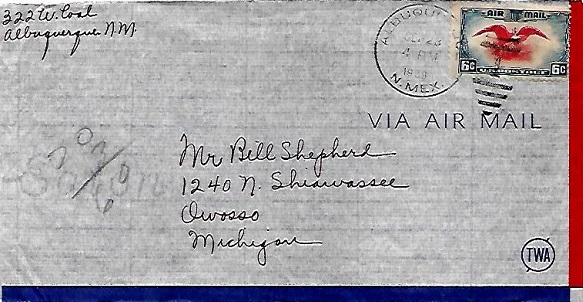 322 W. Coal
Albuquerque N.M.
ALBUQU
23
4 PM
N. MEX.
AIR MAIL
6¢ U.S. POSTAGE 6¢
VIA AIR MAIL
Mr Bill Shepherd
1240 N. Shiawassee
Owosso
Michigan
TWA